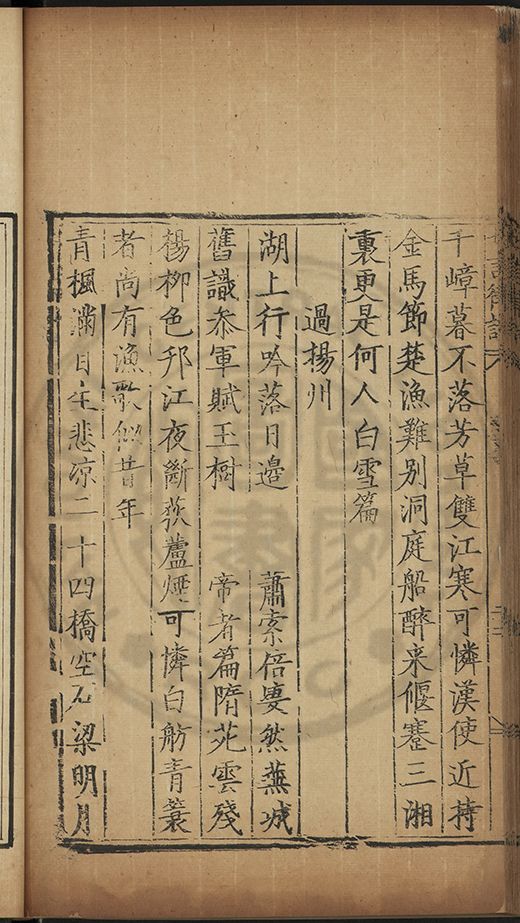 千嶂暮不落芳草雙江寒可憐漢使近持
金馬節楚漁難別洞庭船醉来偃蹇三湘
裏更是何人白雪篇
過揚州
湖上行吟落日邊 蕭索倍悽然蕪城
舊識叅軍賦玉樹 帝者篇隋苑雲殘
楊柳色邗江夜斷荻蘆煙可憐白舫青簑
者尚有漁歌似昔年
青楓滿目生悲凉二十四橋空石梁明月